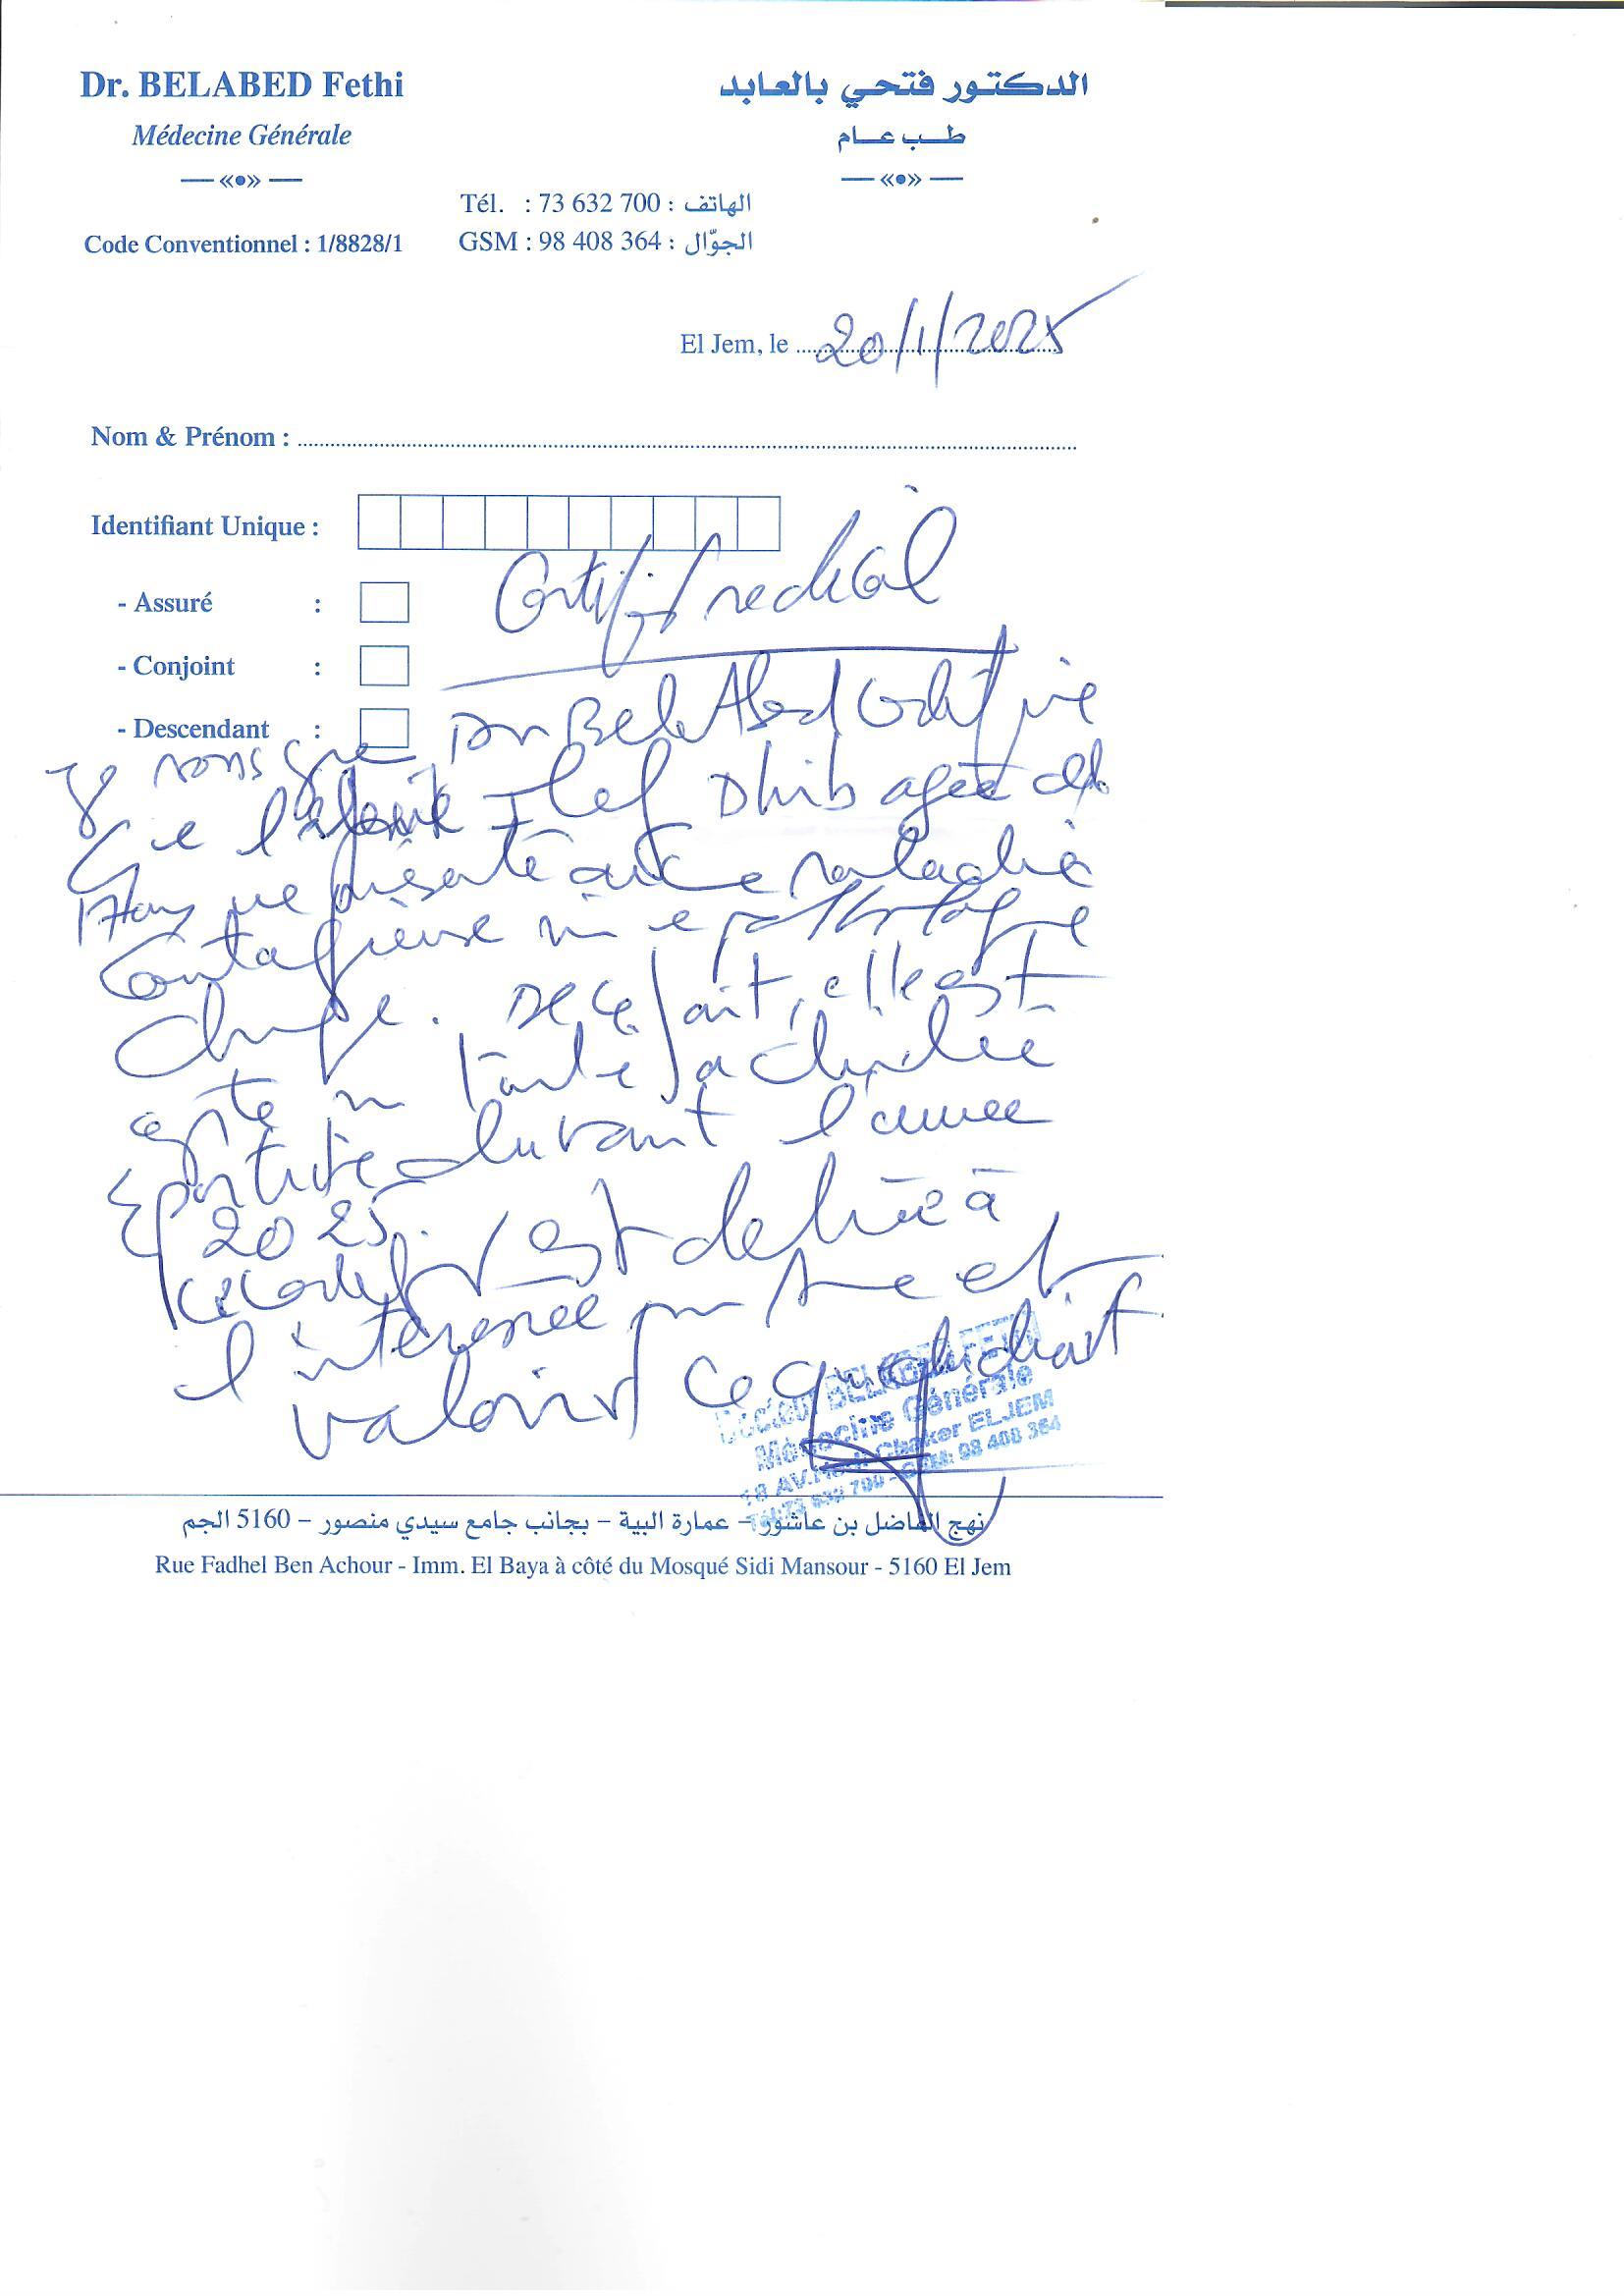 Dr. BELABED Fethi
الدكتور فتحي بالعابد
Médecine Générale
طب عام
Tél. : 73 632 700 : الهاتف
Code Conventionnel : 1/8828/1
GSM : 98 408 364 : الجوّال
El Jem, le 20/1/2025
Nom & Prénom :
Identifiant Unique :
Certificat medical
- Assuré :
- Conjoint :
- Descendant :
Je sousigne Dr BelAbed certifie
que Ilef Dhib agée de
17 ans ne présente aucune maladie
contagieuse ni pathologie
. De ce fait, elle est
apte activité
sportive durant l'année
2025.
Ce certif est delivré à
l'interessée pour et
valoir ce que droit
Docteur BELABED FETHI
Médecine Générale
18 AV. Hedi Chaker ELJEM
Tél: 73 632 700 - GSM: 98 408 364
نهج الفاضل بن عاشور – عمارة البية – بجانب جامع سيدي منصور – 5160 الجم
Rue Fadhel Ben Achour - Imm. El Baya à côté du Mosqué Sidi Mansour - 5160 El Jem